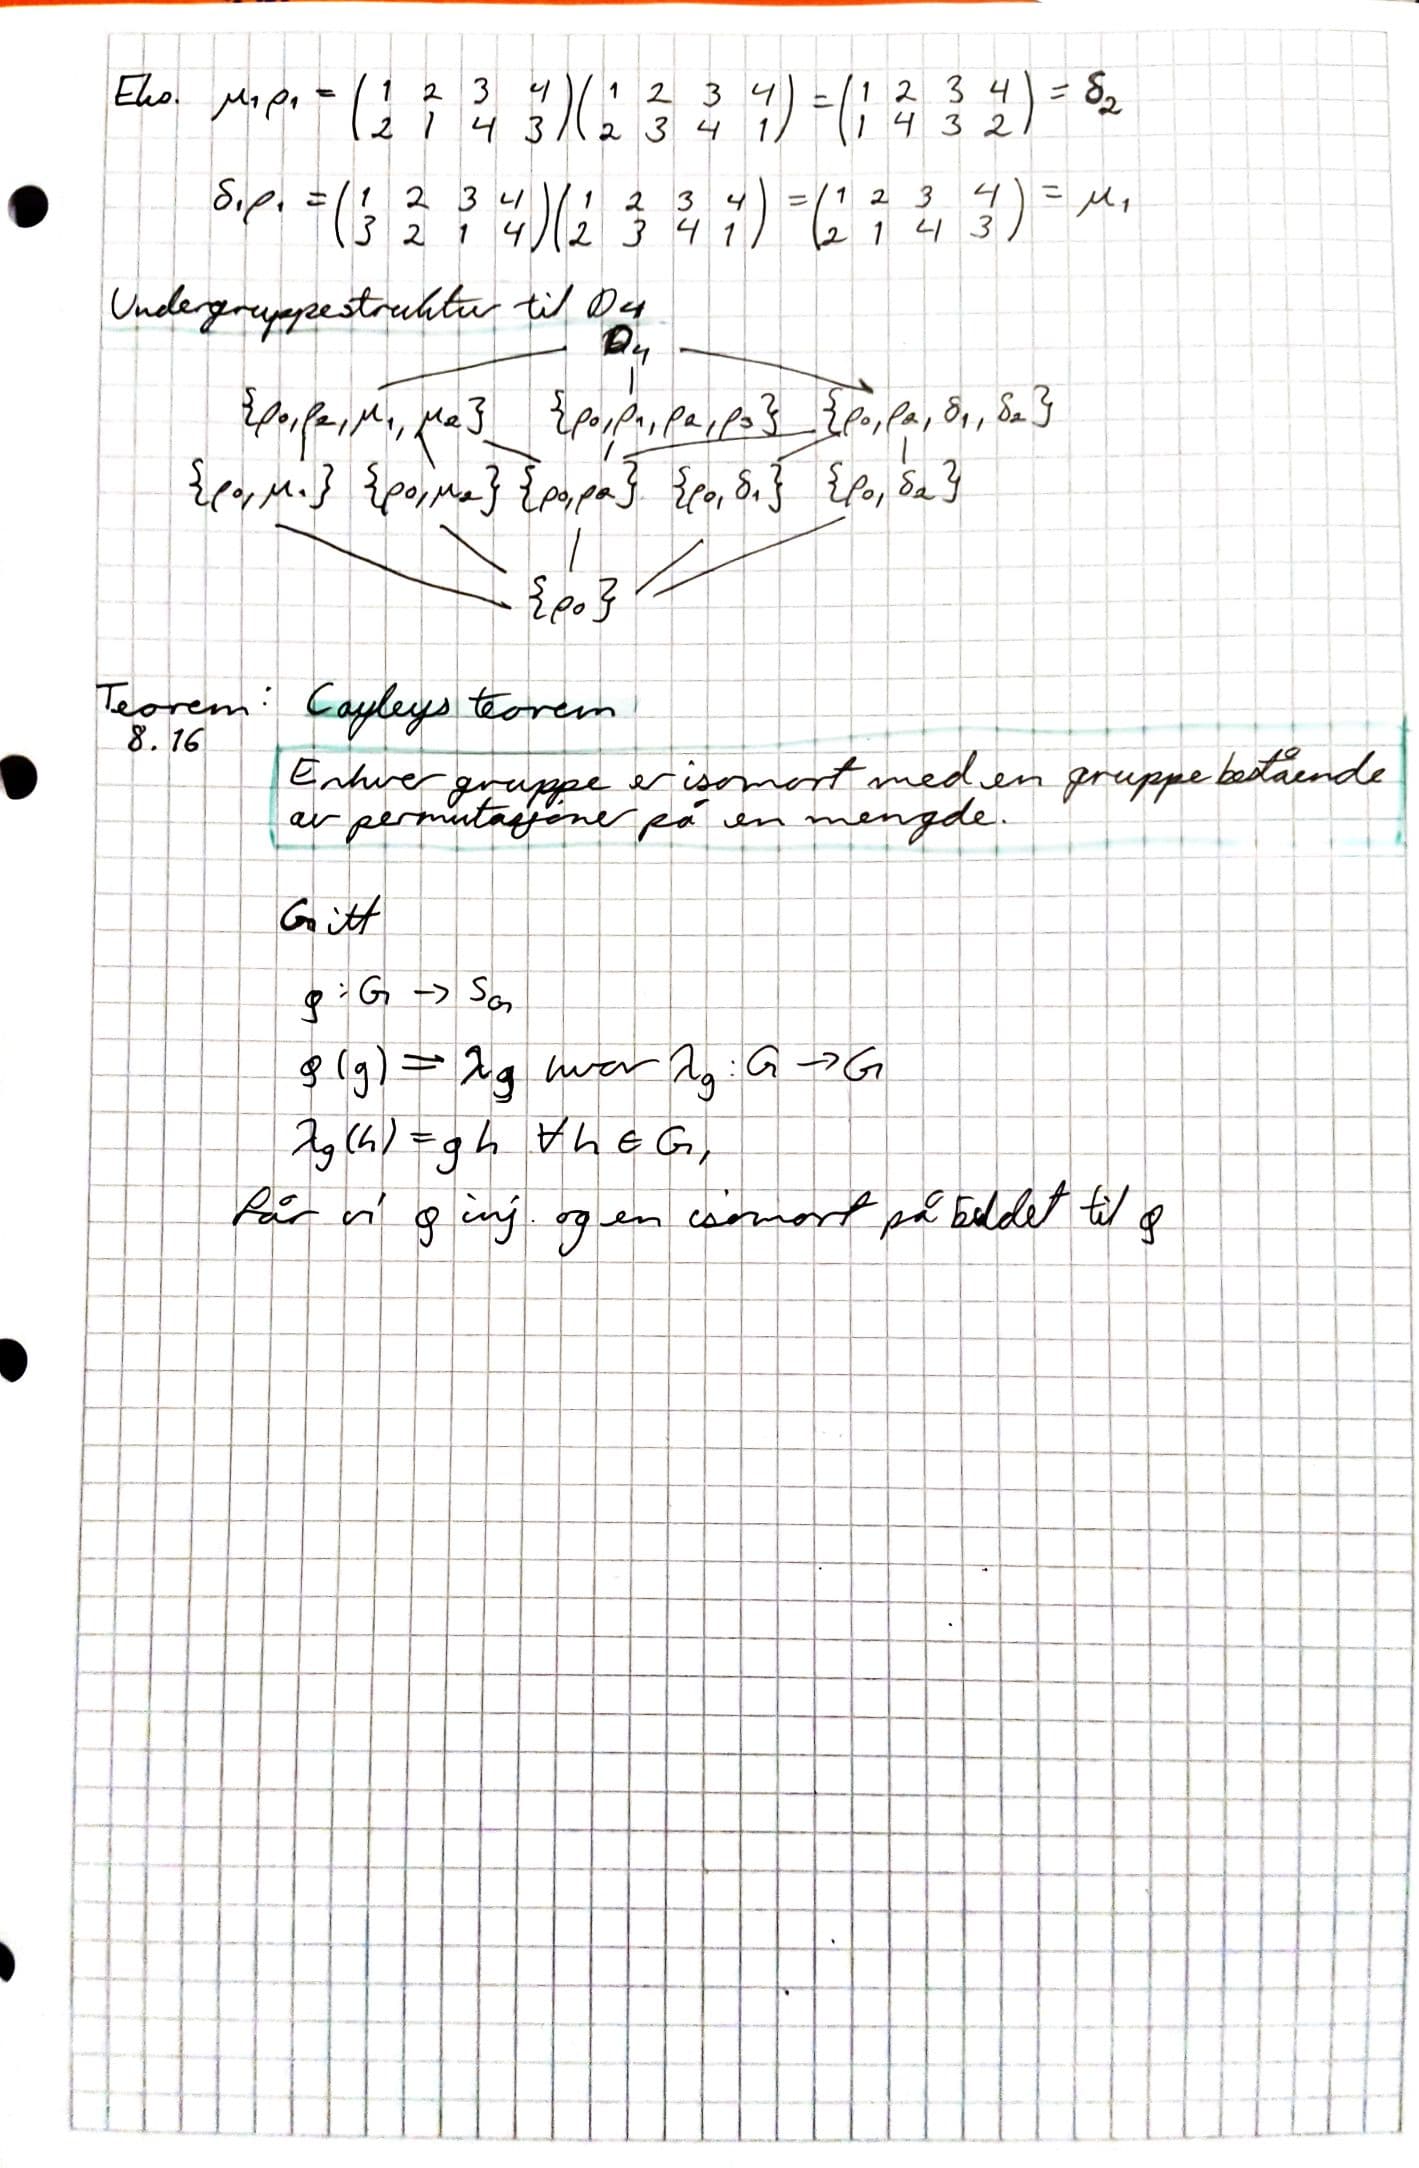 Eks. μ₁ρ₁ = (1 2 3 4 / 2 1 4 3)(1 2 3 4 / 2 3 4 1) = (1 2 3 4 / 1 4 3 2) = δ₂
δ₁ρ₁ = (1 2 3 4 / 3 2 1 4)(1 2 3 4 / 2 3 4 1) = (1 2 3 4 / 2 1 4 3) = μ₁
Undergruppestruktur til D₄
D₄
{ρ₀,ρ₂,μ₁,μ₂} {ρ₀,ρ₁,ρ₂,ρ₃} {ρ₀,ρ₂,δ₁,δ₂}
{ρ₀,μ₁} {ρ₀,μ₂} {ρ₀,ρ₂} {ρ₀,δ₁} {ρ₀,δ₂}
{ρ₀}
Teorem: Cayleys teorem
8.16
Enhver gruppe er isomorf med en gruppe bestående
av permutasjoner på en mengde.
Gitt
φ: G → S_G
φ(g) = λg hvor λg: G → G
λg(h) = gh ∀h ∈ G,
får vi φ inj. og en isomorf på bildet til φ